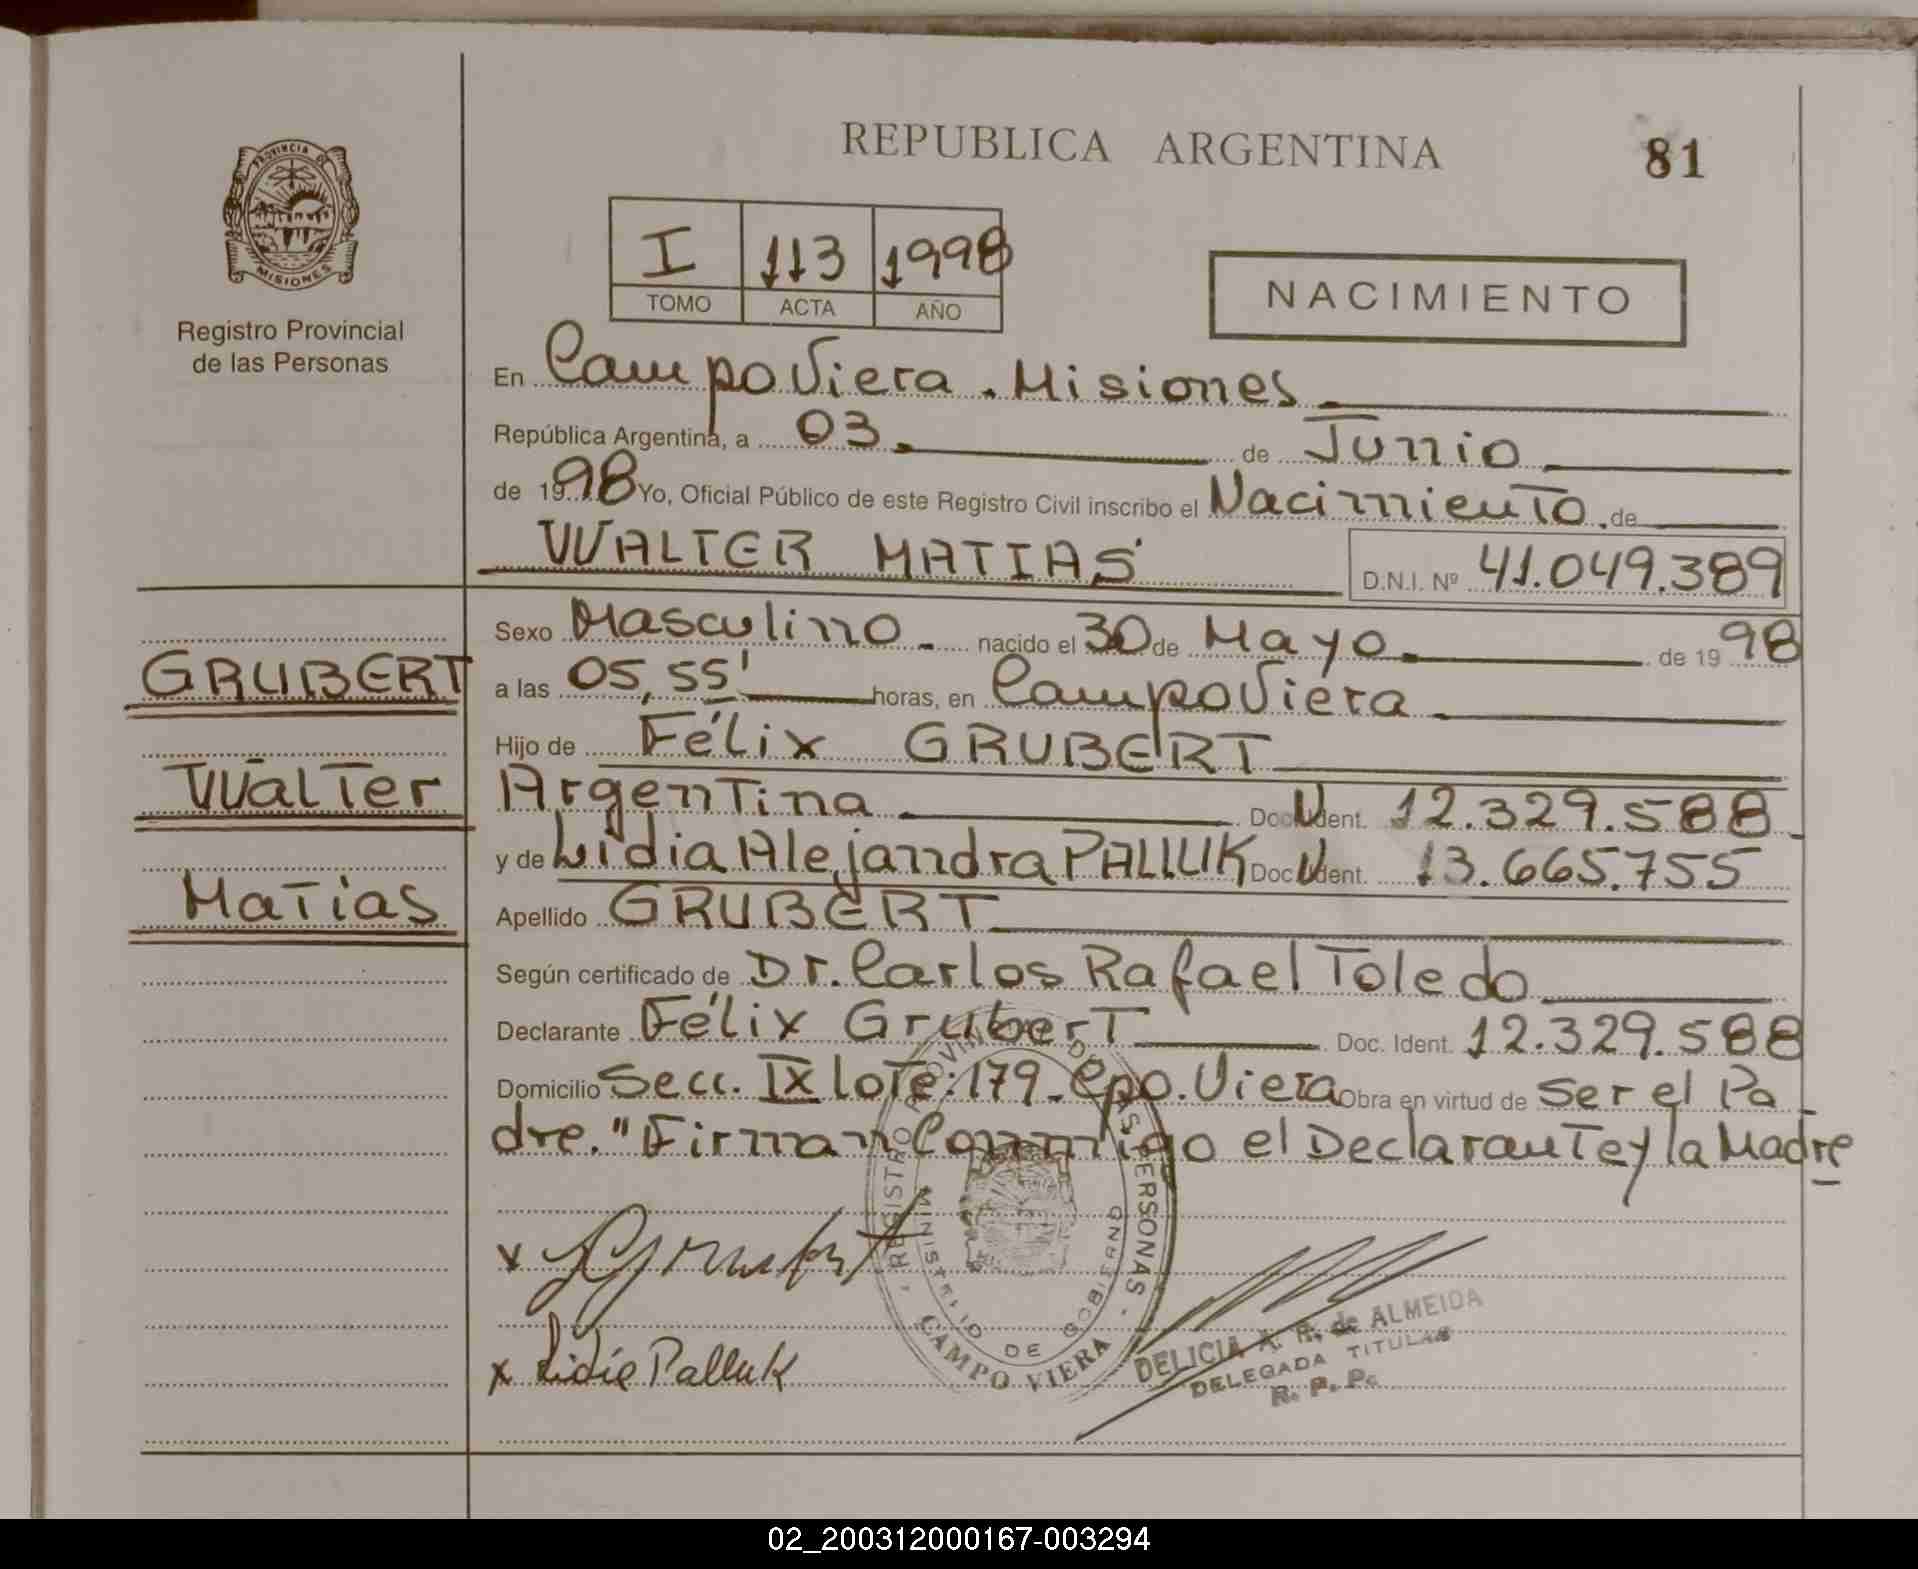 REPUBLICA ARGENTINA
81
PROVINCIA DE
MISIONES
Registro Provincial
de las Personas
I 113 1998
TOMO ACTA AÑO
NACIMIENTO
En Campo Viera. Misiones
República Argentina, a 03 de Junio
de 1998 Yo, Oficial Público de este Registro Civil inscribo el Nacimiento de
WALTER MATIAS D.N.I. Nº 41.049.389
Sexo Masculino nacido el 30 de Mayo de 1998
GRUBERT
a las 05,55' horas, en Campo Viera
Hijo de Félix GRUBERT
Walter
Argentina Doc. Ident. 12.329.588
y de Lidia Alejandra PALLUK Doc. Ident. 13.665.755
Matias
Apellido GRUBERT
Según certificado de Dr. Carlos Rafael Toledo
Declarante Félix Grubert Doc. Ident. 12.329.588
Domicilio Secc. IX lote: 179 - Cpo. Viera Obra en virtud de ser el Pa
dre. "Firman Conmigo el Declarante y la Madre
x Lidia Palluk
REGISTRO PROVINCIAL DE LAS PERSONAS
MINISTERIO DE GOBIERNO
CAMPO VIERA
DELICIA A. R. de ALMEIDA
DELEGADA TITULAR
R. P. P.
02_200312000167-003294